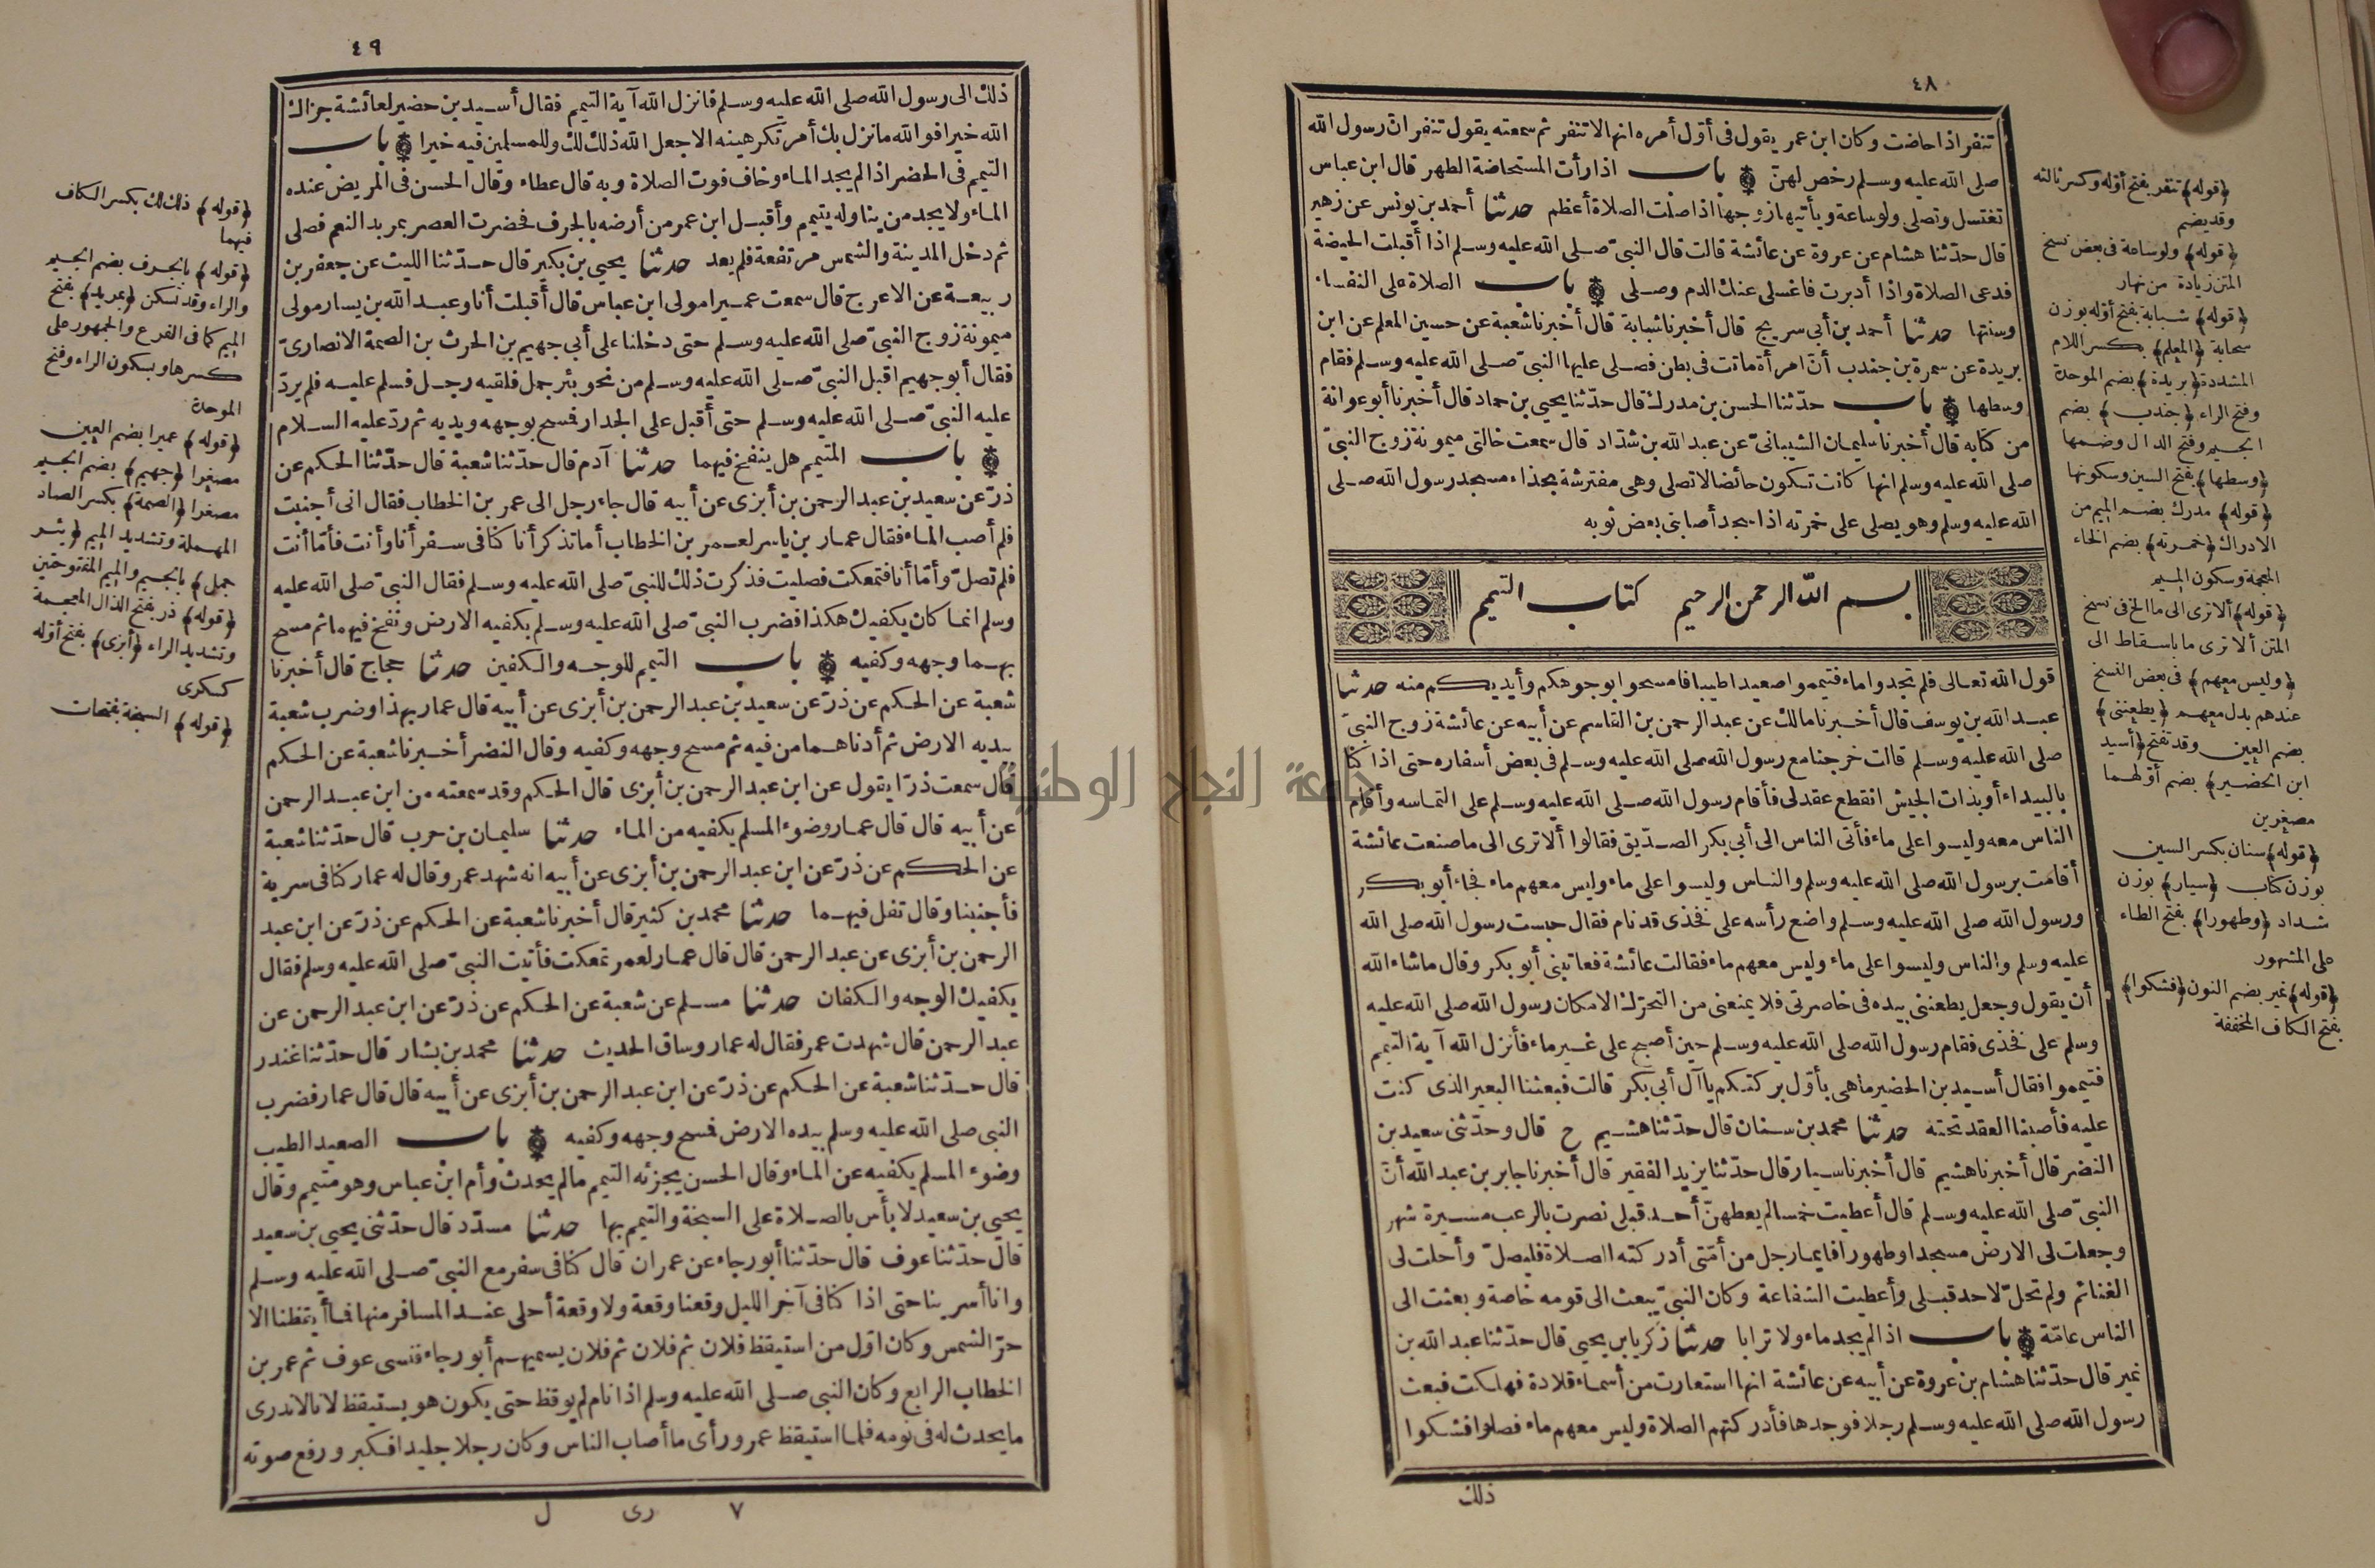 ٤٨
تنفر اذا حاضت وكان ابن عمر يقول فى أول أمره انها لا تنفر ثم سمعته يقول تنفر ان رسول الله
صلى الله عليه وسلم رخص لهن باب اذا رأت المستحاضة الطهر قال ابن عباس
تغتسل وتصلى ولو ساعة ويأتيها زوجها اذا صلت الصلاة أعظم حدثنا أحمد بن يونس عن زهير
قال حدثنا هشام عن عروة عن عائشة قالت قال النبى صلى الله عليه وسلم اذا أقبلت الحيضة
فدعى الصلاة واذا أدبرت فاغسلى عنك الدم وصلى باب الصلاة على النفساء
وسنتها حدثنا أحمد بن أبى سريج قال أخبرنا شبابة قال أخبرنا شعبة عن حسين المعلم عن ابن
بريدة عن سمرة بن جندب أن امرأة ماتت فى بطن فصلى عليها النبى صلى الله عليه وسلم فقام
وسطها باب حدثنا الحسن بن مدرك قال حدثنا يحيى بن حماد قال أخبرنا أبو عوانة
من كتابه قال أخبرنا سليمان الشيبانى عن عبد الله بن شداد قال سمعت خالتى ميمونة زوج النبى
صلى الله عليه وسلم انها كانت تكون حائضا لا تصلى وهى مفترشة بحذاء مسجد رسول الله صلى
الله عليه وسلم وهو يصلى على خمرته اذا سجد أصابنى بعض ثوبه
بسم الله الرحمن الرحيم كتاب التيمم
قول الله تعالى فلم تجدوا ماء فتيمموا صعيدا طيبا فامسحوا بوجوهكم وأيديكم منه حدثنا
عبد الله بن يوسف قال أخبرنا مالك عن عبد الرحمن بن القاسم عن أبيه عن عائشة زوج النبى
صلى الله عليه وسلم قالت خرجنا مع رسول الله صلى الله عليه وسلم فى بعض أسفاره حتى اذا كنا
بالبيداء أو بذات الجيش انقطع عقد لى فأقام رسول الله صلى الله عليه وسلم على التماسه وأقام
الناس معه وليسوا على ماء فأتى الناس الى أبى بكر الصديق فقالوا ألا ترى الى ما صنعت عائشة
أقامت برسول الله صلى الله عليه وسلم والناس وليسوا على ماء وليس معهم ماء فجاء أبو بكر
ورسول الله صلى الله عليه وسلم واضع رأسه على فخذى قد نام فقال حبست رسول الله صلى الله
عليه وسلم والناس وليسوا على ماء وليس معهم ماء فقالت عائشة فعاتبنى أبو بكر وقال ما شاء الله
أن يقول وجعل يطعننى بيده فى خاصرتى فلا يمنعنى من التحرك الا مكان رسول الله صلى الله عليه
وسلم على فخذى فقام رسول الله صلى الله عليه وسلم حين أصبح على غير ماء فأنزل الله آية التيمم
فتيمموا فقال أسيد بن الحضير ما هى بأول بركتكم يا آل أبى بكر قالت فبعثنا البعير الذى كنت
عليه فأصبنا العقد تحته حدثنا محمد بن سنان قال حدثنا هشيم ح قال وحدثنى سعيد بن
النضر قال أخبرنا هشيم قال أخبرنا سيار قال حدثنا يزيد الفقير قال أخبرنا جابر بن عبد الله أن
النبى صلى الله عليه وسلم قال أعطيت خمسا لم يعطهن أحد قبلى نصرت بالرعب مسيرة شهر
وجعلت لى الارض مسجدا وطهورا فايما رجل من أمتى أدركته الصلاة فليصل وأحلت لى
الغنائم ولم تحل لاحد قبلى وأعطيت الشفاعة وكان النبى يبعث الى قومه خاصة وبعثت الى
الناس عامة باب اذا لم يجد ماء ولا ترابا حدثنا زكريا بن يحيى قال حدثنا عبد الله بن
نمير قال حدثنا هشام بن عروة عن أبيه عن عائشة انها استعارت من أسماء قلادة فهلكت فبعث
رسول الله صلى الله عليه وسلم رجلا فوجدها فأدركتهم الصلاة وليس معهم ماء فصلوا فشكوا
ذلك
(قوله) تنفر بفتح أوله وكسر ثالثه
وقد يضم
(قوله) ولو ساعة فى بعض نسخ
المتن زيادة من نهار
(قوله) شبابة بفتح أوله بوزن
سحابة (المعلم) بكسر اللام
المشددة (بريدة) بضم الموحدة
وفتح الراء (جندب) بضم
الجيم وفتح الدال وضمها
(وسطها) بفتح السين وسكونها
(قوله) مدرك بضم الميم من
الادراك (خمرته) بضم الخاء
المعجمة وسكون الميم
(قوله) ألا ترى الى ما الخ فى نسخ
المتن ألا ترى ما باسقاط الى
(وليس معهم) فى بعض النسخ
عندهم بدل معهم (يطعننى)
بضم العين وقد تفتح (أسيد
ابن الحضير) بضم أولهما
مصغرين
(قوله) سنان بكسر السين
بوزن كتاب (سيار) بوزن
شداد (وطهورا) بفتح الطاء
على المشهور
(قوله) نمير بضم النون (فشكوا)
بفتح الكاف المخففة
٤٩
ذلك الى رسول الله صلى الله عليه وسلم فانزل الله آية التيمم فقال أسيد بن حضير لعائشة جزاك
الله خيرا فوالله ما نزل بك أمر تكرهينه الا جعل الله ذلك لك وللمسلمين فيه خيرا باب
التيمم فى الحضر اذا لم يجد الماء وخاف فوت الصلاة وبه قال عطاء وقال الحسن فى المريض عنده
الماء ولا يجد من يناوله يتيمم وأقبل ابن عمر من أرضه بالجرف فحضرت العصر بمربد النعم فصلى
ثم دخل المدينة والشمس مرتفعة فلم يعد حدثنا يحيى بن بكير قال حدثنا الليث عن جعفر بن
ربيعة عن الاعرج قال سمعت عميرا مولى ابن عباس قال أقبلت أنا وعبد الله بن يسار مولى
ميمونة زوج النبى صلى الله عليه وسلم حتى دخلنا على أبى جهيم بن الحرث بن الصمة الانصارى
فقال أبو جهيم اقبل النبى صلى الله عليه وسلم من نحو بئر جمل فلقيه رجل فسلم عليه فلم يرد
عليه النبى صلى الله عليه وسلم حتى أقبل على الجدار فمسح بوجهه ويديه ثم رد عليه السلام
باب المتيمم هل ينفخ فيهما حدثنا آدم قال حدثنا شعبة قال حدثنا الحكم عن
ذر عن سعيد بن عبد الرحمن بن أبزى عن أبيه قال جاء رجل الى عمر بن الخطاب فقال انى أجنبت
فلم أصب الماء فقال عمار بن ياسر لعمر بن الخطاب أما تذكر أنا كنا فى سفر أنا وأنت فأما أنت
فلم تصل وأما أنا فتمعكت فصليت فذكرت ذلك للنبى صلى الله عليه وسلم فقال النبى صلى الله عليه
وسلم انما كان يكفيك هكذا فضرب النبى صلى الله عليه وسلم بكفيه الارض ونفخ فيهما ثم مسح
بهما وجهه وكفيه باب التيمم للوجه والكفين حدثنا حجاج قال أخبرنا
شعبة عن الحكم عن ذر عن سعيد بن عبد الرحمن بن أبزى عن أبيه قال عمار بهذا وضرب شعبة
بيديه الارض ثم أدناهما من فيه ثم مسح وجهه وكفيه وقال النضر أخبرنا شعبة عن الحكم
قال سمعت ذرا يقول عن ابن عبد الرحمن بن أبزى قال الحكم وقد سمعته من ابن عبد الرحمن
عن أبيه قال قال عمار وضوء المسلم يكفيه من الماء حدثنا سليمان بن حرب قال حدثنا شعبة
عن الحكم عن ذر عن ابن عبد الرحمن بن أبزى عن أبيه انه شهد عمر وقال له عمار كنا فى سرية
فأجنبنا وقال تفل فيهما حدثنا محمد بن كثير قال أخبرنا شعبة عن الحكم عن ذر عن ابن عبد
الرحمن بن أبزى عن عبد الرحمن قال قال عمار لعمر تمعكت فأتيت النبى صلى الله عليه وسلم فقال
يكفيك الوجه والكفان حدثنا مسلم عن شعبة عن الحكم عن ذر عن ابن عبد الرحمن عن
عبد الرحمن قال شهدت عمر فقال له عمار وساق الحديث حدثنا محمد بن بشار قال حدثنا غندر
قال حدثنا شعبة عن الحكم عن ذر عن ابن عبد الرحمن بن أبزى عن أبيه قال قال عمار فضرب
النبى صلى الله عليه وسلم بيده الارض فمسح وجهه وكفيه باب الصعيد الطيب
وضوء المسلم يكفيه عن الماء وقال الحسن يجزئه التيمم ما لم يحدث وأم ابن عباس وهو متيمم وقال
يحيى بن سعيد لا بأس بالصلاة على السبخة والتيمم بها حدثنا مسدد قال حدثنى يحيى بن سعيد
قال حدثنا عوف قال حدثنا أبو رجاء عن عمران قال كنا فى سفر مع النبى صلى الله عليه وسلم
وانا أسرينا حتى اذا كنا فى آخر الليل وقعنا وقعة ولا وقعة أحلى عند المسافر منها فما أيقظنا الا
حر الشمس وكان اول من استيقظ فلان ثم فلان ثم فلان يسميهم أبو رجاء فنسى عوف ثم عمر بن
الخطاب الرابع وكان النبى صلى الله عليه وسلم اذا نام لم يوقظ حتى يكون هو يستيقظ لانا لا ندرى
ما يحدث له فى نومه فلما استيقظ عمر ورأى ما أصاب الناس وكان رجلا جليدا فكبر ورفع صوته
٧ رى ل
(قوله) ذلك لك بكسر الكاف
فيهما
(قوله) بالجرف بضم الجيم
والراء وقد تسكن (بمربد) بفتح
الميم كما فى الفرع والجمهور على
كسرها وبسكون الراء وفتح
الموحدة
(قوله) عميرا بضم العين
مصغرا (جهيم) بضم الجيم
مصغرا (الصمة) بكسر الصاد
المهملة وتشديد الميم (بئر
جمل) بالجيم والميم المفتوحتين
(قوله) ذر بفتح الذال المعجمة
وتشديد الراء (أبزى) بفتح أوله
كسكرى
(قوله) السبخة بفتحات
جامعة النجاح الوطنية